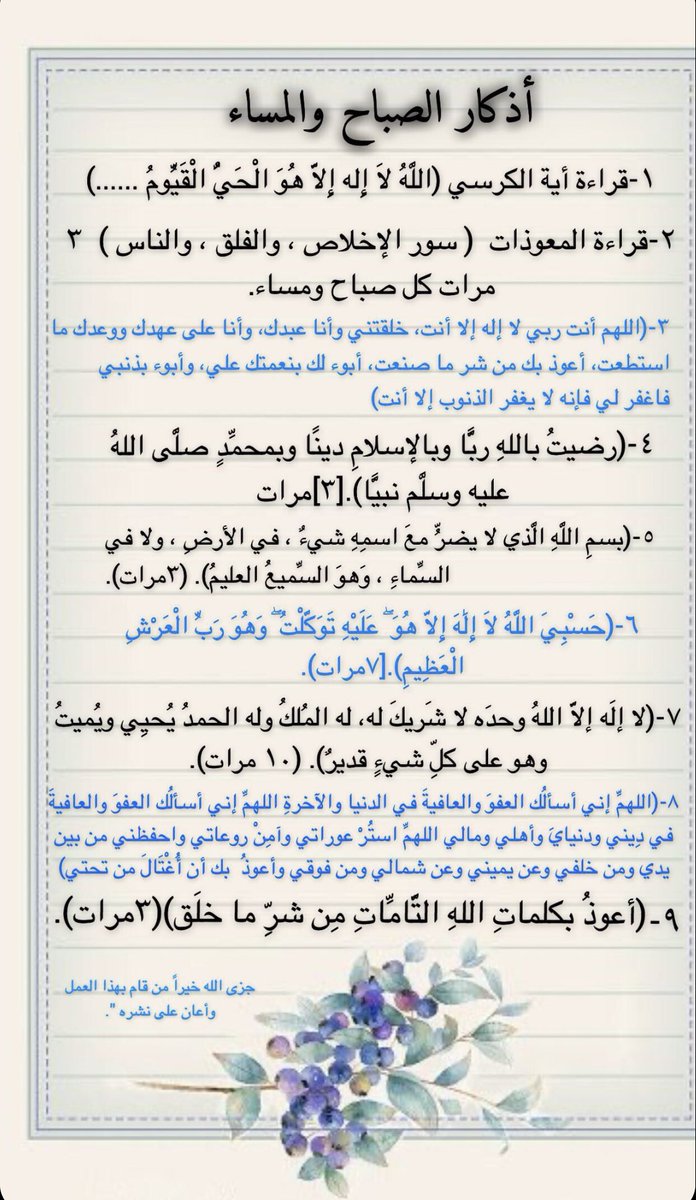 أذكار الصباح والمساء
١-قراءة أية الكرسي (اللَّهُ لاَ إله إلاَّ هُوَ الْحَيُّ الْقَيُّومُ ......)
٢-قراءة المعوذات ( سور الإخلاص ، والفلق ، والناس ) ٣
مرات كل صباح ومساء.
٣-(اللهم أنت ربي لا إله إلا أنت، خلقتني وأنا عبدك، وأنا على عهدك ووعدك ما
استطعت، أعوذ بك من شر ما صنعت، أبوء لك بنعمتك علي، وأبوء بذنبي
فاغفر لي فإنه لا يغفر الذنوب إلا أنت)
٤-(رضيتُ باللهِ ربًّا وبالإسلامِ دينًا وبمحمدٍ صلَّى اللهُ
عليه وسلَّم نبيًّا).[٣]مرات
٥-(بسمِ اللَّهِ الَّذي لا يضرُّ معَ اسمِهِ شيءٌ ، في الأرضِ ، ولا في
السَّماءِ ، وَهوَ السَّميعُ العليمُ). (٣مرات).
٦-(حَسْبِيَ اللَّهُ لاَ إِلَٰهَ إِلاَّ هُوَ ۖ عَلَيْهِ تَوَكَّلْتُ ۖ وَهُوَ رَبُّ الْعَرْشِ
الْعَظِيمِ).[٧مرات).
٧-(لا إلَه إلاَّ اللهُ وحدَه لا شَريكَ له، له المُلكُ وله الحمدُ يُحيِي ويُميتُ
وهو على كلِّ شيءٍ قديرٌ). (١٠ مرات).
٨-(اللهمِّ إني أسألُك العفوَ والعافيةَ في الدنيا والآخرةِ اللهمِّ إني أسألُك العفوَ والعافيةَ
في دِيني ودنيايَ وأهلي ومالي اللهمِّ استُرْ عوراتي وآمِنْ روعاتي واحفظني من بين
يدي ومن خلفي وعن يميني وعن شمالي ومن فوقي وأعوذُ بك أن أُغْتَالَ من تحتي)
٩-(أعوذُ بكلماتِ اللهِ التَّامَّاتِ مِن شرِّ ما خلَق)(٣مرات).
جزى الله خيراً من قام بهذا العمل
وأعان على نشره ".